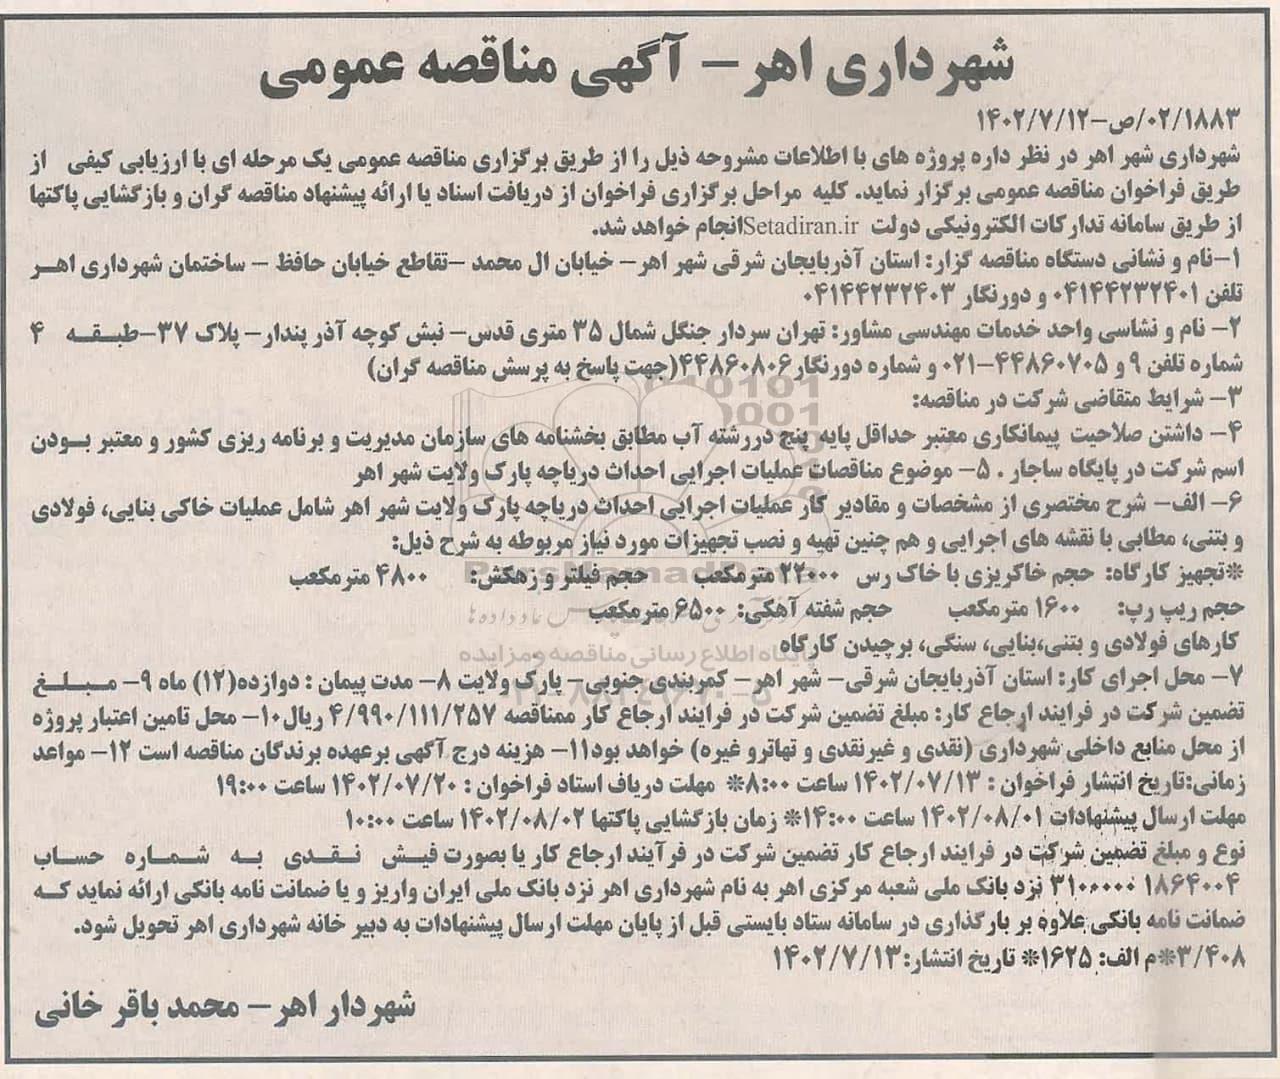 شهرداری اهر – آگهی مناقصه عمومی
۰۲/۱۸۸۳/ص-۱۴۰۲/۷/۱۲
شهرداری شهر اهر در نظر داره پروژه های با اطلاعات مشروحه ذیل را از طریق برگزاری مناقصه عمومی یک مرحله ای با ارزیابی کیفی از
طریق فراخوان مناقصه عمومی برگزار نماید. کلیه مراحل برگزاری فراخوان از دریافت اسناد یا ارائه پیشنهاد مناقصه گران و بازگشایی پاکتها
از طریق سامانه تدارکات الکترونیکی دولت Setadiran.ir انجام خواهد شد.
۱-نام و نشانی دستگاه مناقصه گزار: استان آذربایجان شرقی شهر اهر- خیابان ال محمد -تقاطع خیابان حافظ – ساختمان شهرداری اهر
تلفن ۰۴۱۴۴۲۳۲۴۰۱ و دورنگار ۰۴۱۴۴۲۳۲۴۰۳
۲- نام و نشاسی واحد خدمات مهندسی مشاور: تهران سردار جنگل شمال ۳۵ متری قدس- نبش کوچه آذر پندار- پلاک ۳۷-طبقه ۴
شماره تلفن ۹ و ۴۴۸۶۰۷۰۵-۰۲۱ و شماره دورنگار ۴۴۸۶۰۸۰۶(جهت پاسخ به پرسش مناقصه گران)
۳- شرایط متقاضی شرکت در مناقصه:
۴- داشتن صلاحیت پیمانکاری معتبر حداقل پایه پنج دررشته آب مطابق بخشنامه های سازمان مدیریت و برنامه ریزی کشور و معتبر بودن
اسم شرکت در پایگاه ساجار . ۵- موضوع مناقصات عملیات اجرایی احداث دریاچه پارک ولایت شهر اهر
۶- الف- شرح مختصری از مشخصات و مقادیر کار عملیات اجرایی احداث دریاچه پارک ولایت شهر اهر شامل عملیات خاکی بنایی، فولادی
و بتنی، مطابی با نقشه های اجرایی و هم چنین تهیه و نصب تجهیزات مورد نیاز مربوطه به شرح ذیل:
*تجهیز کارگاه: حجم خاکریزی با خاک رس ۲۲۰۰۰ مترمکعب حجم فیلتر و زهکش: ۴۸۰۰ مترمکعب
حجم ریپ رپ: ۱۶۰۰ مترمکعب حجم شفته آهکی: ۶۵۰۰ مترمکعب
کارهای فولادی و بتنی،بنایی، سنگی، برچیدن کارگاه
۷- محل اجرای کار: استان آذربایجان شرقی- شهر اهر- کمربندی جنوبی- پارک ولایت ۸- مدت پیمان : دوازده(۱۲) ماه ۹- مبلغ
تضمین شرکت در فرایند ارجاع کار: مبلغ تضمین شرکت در فرایند ارجاع کار ممناقصه ۴/۹۹۰/۱۱۱/۲۵۷ ریال۱۰- محل تامین اعتبار پروژه
از محل منابع داخلی شهرداری (نقدی و غیرنقدی و تهاترو غیره) خواهد بود۱۱- هزینه درج آگهی برعهده برندگان مناقصه است ۱۲- مواعد
زمانی:تاریخ انتشار فراخوان : ۱۴۰۲/۰۷/۱۳ ساعت ۸:۰۰* مهلت دریاف استاد فراخوان : ۱۴۰۲/۰۷/۲۰ ساعت ۱۹:۰۰
مهلت ارسال پیشنهادات ۱۴۰۲/۰۸/۰۱ ساعت ۱۴:۰۰* زمان بازگشایی پاکتها ۱۴۰۲/۰۸/۰۲ ساعت ۱۰:۰۰
نوع و مبلغ تضمین شرکت در فرایند ارجاع کار تضمین شرکت در فرآیند ارجاع کار یا بصورت فیش نقدی به شماره حساب
۳۱۰۰۰۰۰ ۱۸۶۴۰۰۴ نزد بانک ملی شعبه مرکزی اهر به نام شهرداری اهر نزد بانک ملی ایران واریز و یا ضمانت نامه بانکی ارائه نماید که
ضمانت نامه بانکی علاوه بر بارگذاری در سامانه ستاد بایستی قبل از پایان مهلت ارسال پیشنهادات به دبیر خانه شهرداری اهر تحویل شود.
۳/۴۰۸*م الف: ۱۶۲۵* تاریخ انتشار:۱۴۰۲/۷/۱۳
شهردار اهر – محمد باقر خانی
پایگاه اطلاع رسانی مناقصه و مزایده